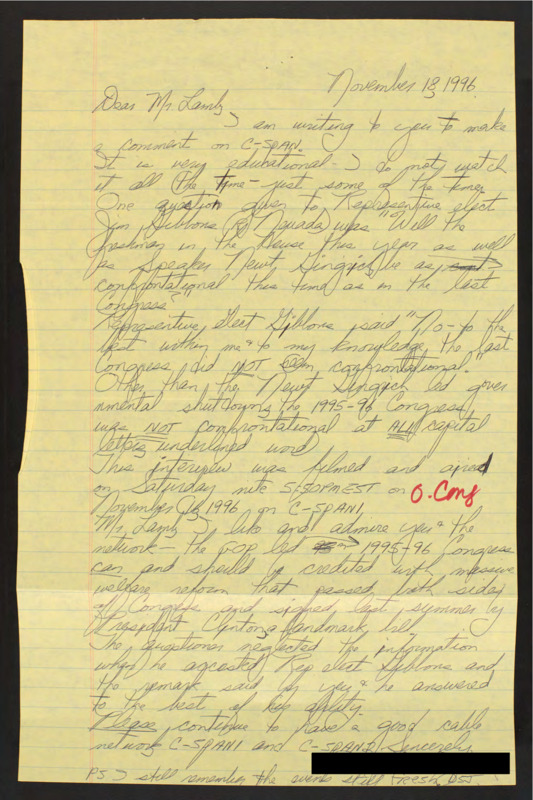 November 18, 1996
Dear Mr. Lamb,
I am writing to you to make
a comment on C-SPAN.
It is very educational - I do not watch
it all the time - just some of the time.
One question given to Representative elect
Jim Gibbons (R) Nevada) was "Will the
freshmen in the House this year as well
as Speaker Newt Gingrich be as
confrontational this time as in the last
Congress?"
Representive Elect Gibbons said "No - to the
best within me & to my knowledge, the last
Congress did NOT seem confrontational."
Other than the Newt Gingrich led gover
nmental shutdowns, the 1995-96 Congress
was NOT confrontational at ALL (capital
letters underlined word)
This interview was filmed and aired
on Saturday nite 5:50PM EST on O. Cong
November 16, 1996 on C-SPAN1.
Mr. Lamb, I like and admire you & the
network - the GOP led 1995-96 Congress
can and should be credited with massive
welfare reform that passed both sides
of Congress and signed last summer by
President Clinton, a landmark bill.
The questioner neglected the information
when he Rep elect Gibbons and
the remark said by you & he answered
to the best of his ability.
Please continue to have a good cable
network C-SPAN1 and C-SPAN2. Sincerely,
PS I still remember the still